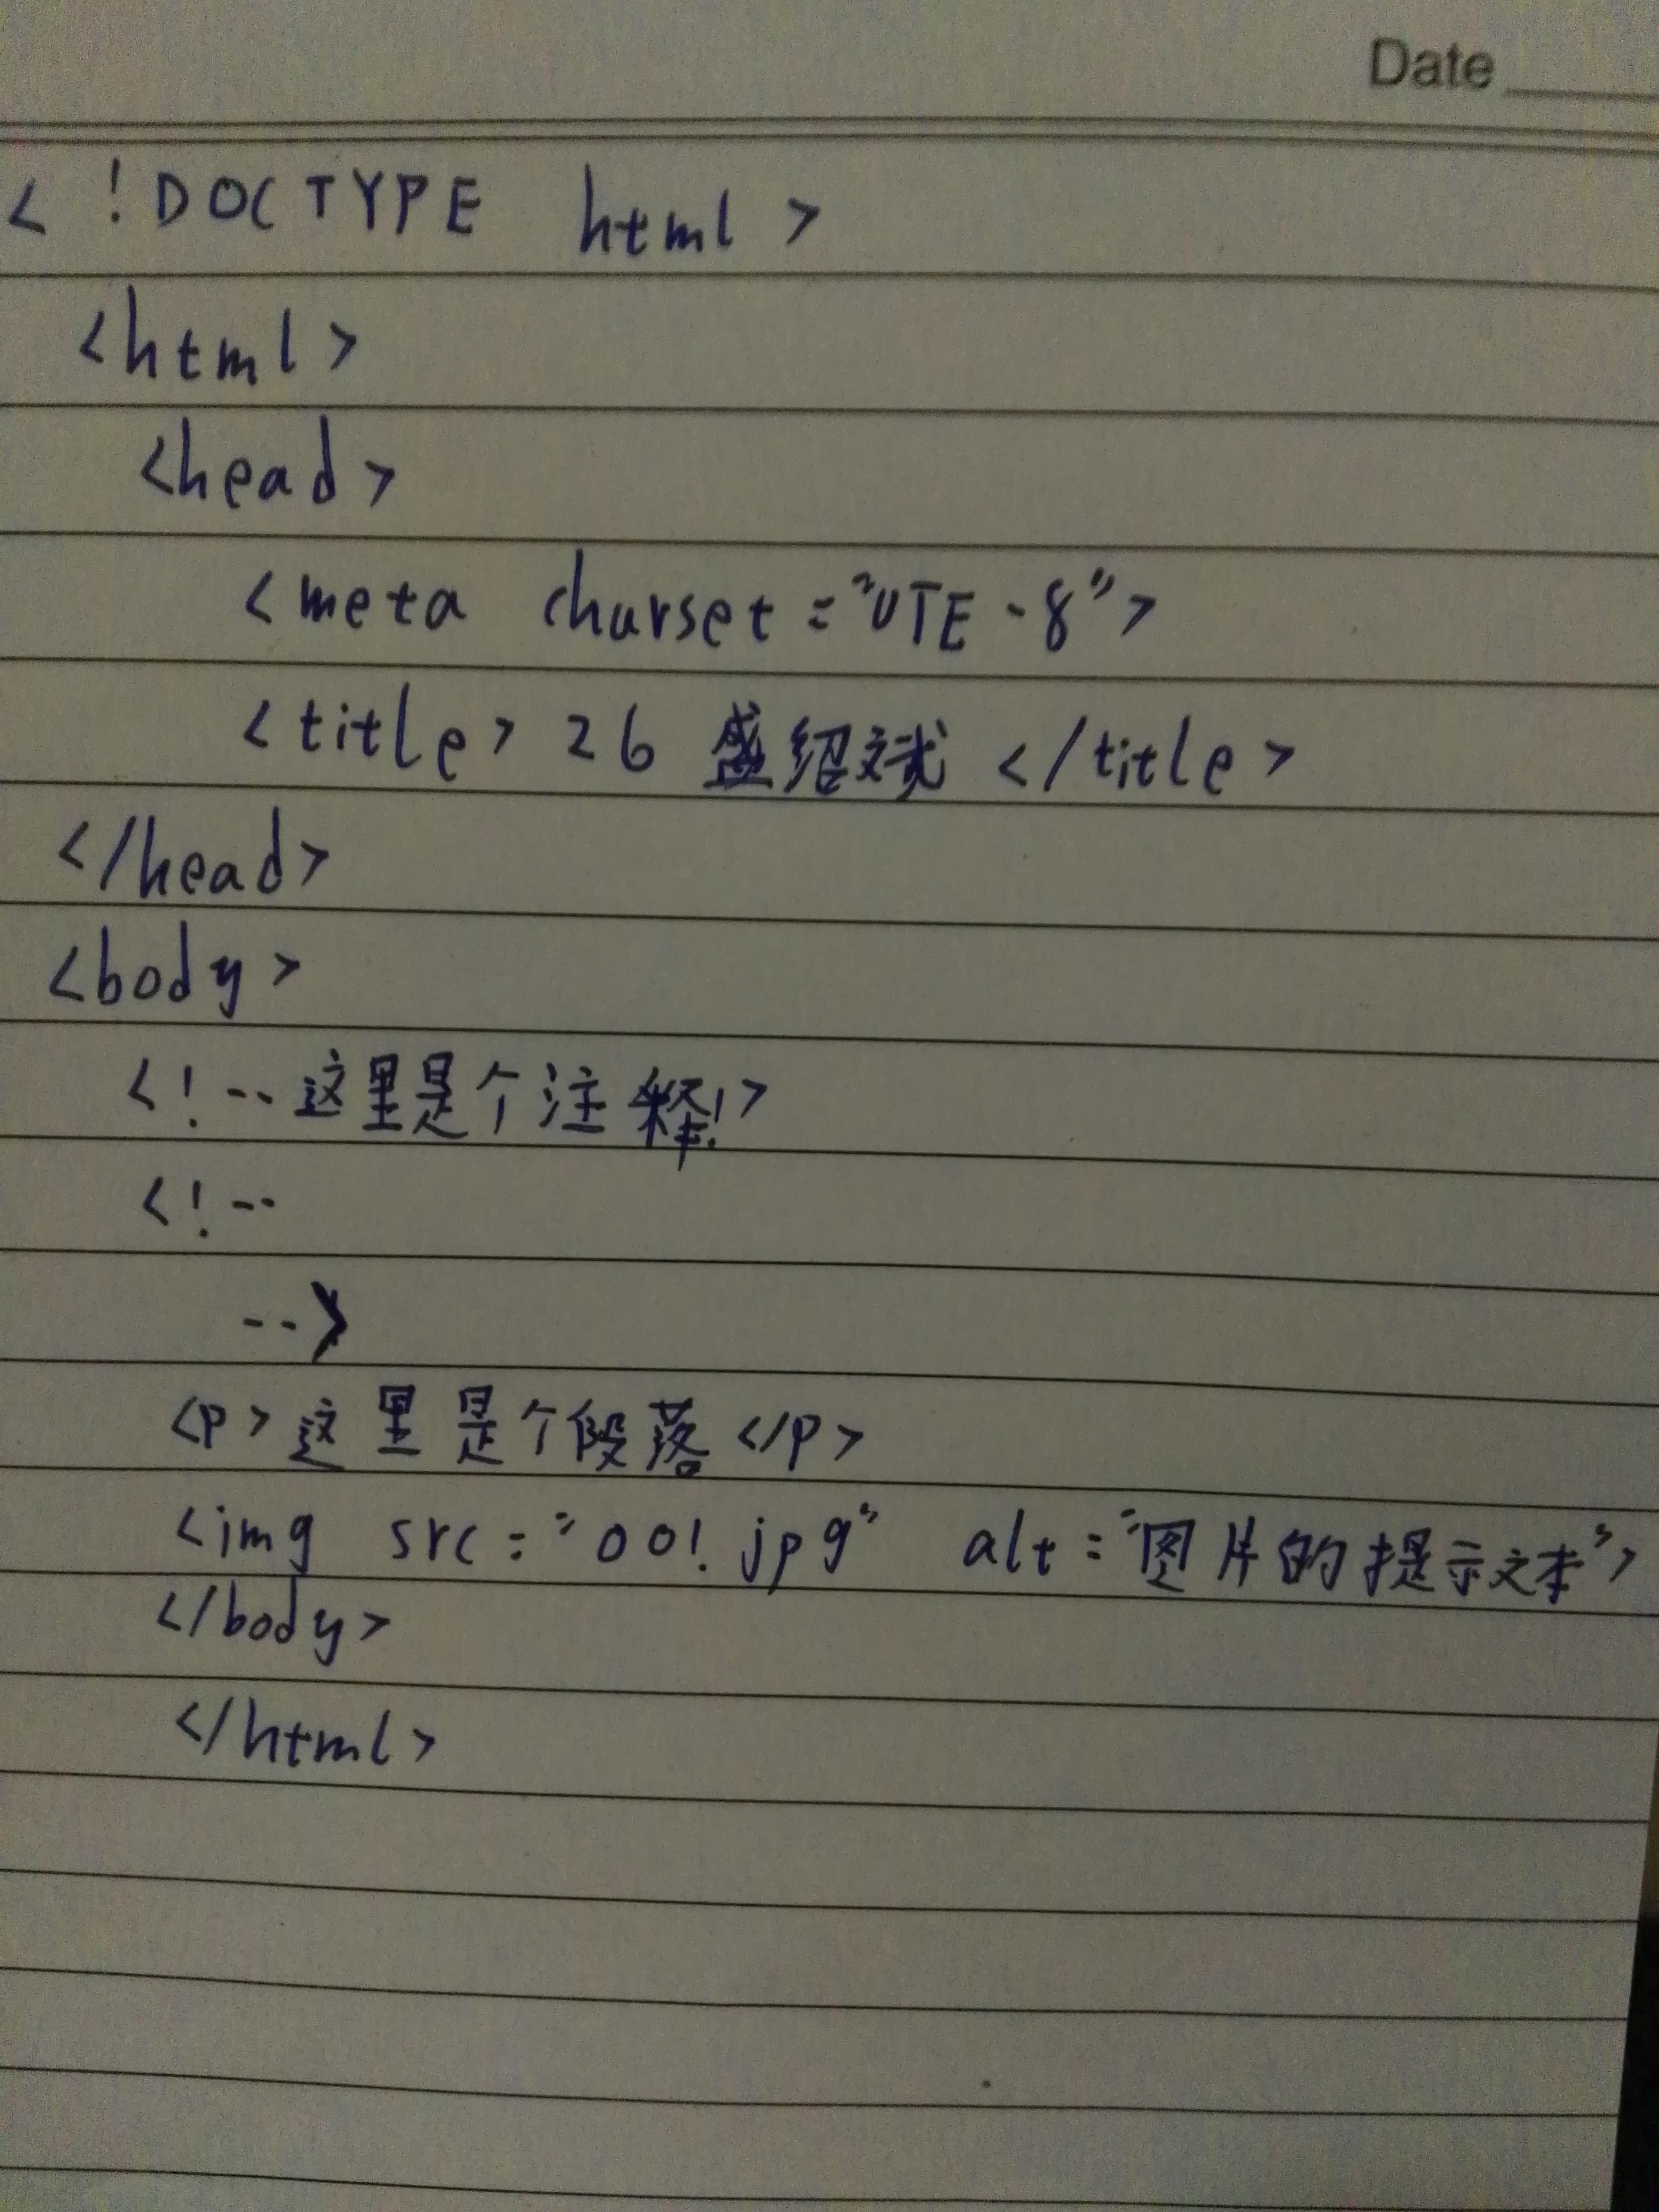 Date
< !DOCTYPE html >
<html>
<head>
<meta charset="UTE-8">
<title> 26 盛绍斌 </title>
</head>
<body>
<!--这里是个注释!>
<!--
-->
<p>这里是个段落</p>
<img src="00!.jpg" alt="图片的提示文本">
</body>
</html>